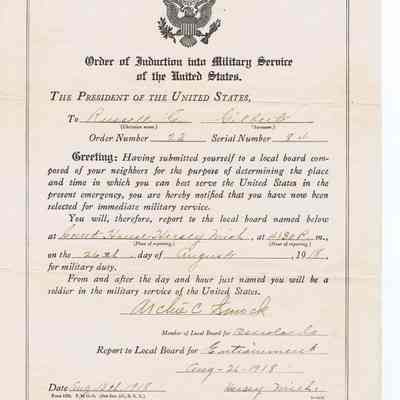 Order of Induction into Military Service
of the United States.
THE PRESIDENT OF THE UNITED STATES,
To Russell G. Gilbert
(Christian name.) (Surname.)
Order Number 22 Serial Number 84
Greeting: Having submitted yourself to a local board com-
posed of your neighbors for the purpose of determining the place
and time in which you can best serve the United States in the
present emergency, you are hereby notified that you have now
been selected for immediate military service.
You will, therefore, report to the local board named below
at Court House Hersey Mich, at 4:30 P. m.,
(Place of reporting.) (Hour of reporting.)
on the 26th day of August, 1918,
for military duty.
From and after the day and hour just named you will be a
soldier in the military service of the United States.
Archie C.
Member of Local Board for Osceola Co
Report to Local Board for Entrainment
Aug-26-1918
Date Aug 18th 1918 Hersey Mich.
Form 1028, P. M. G. O.